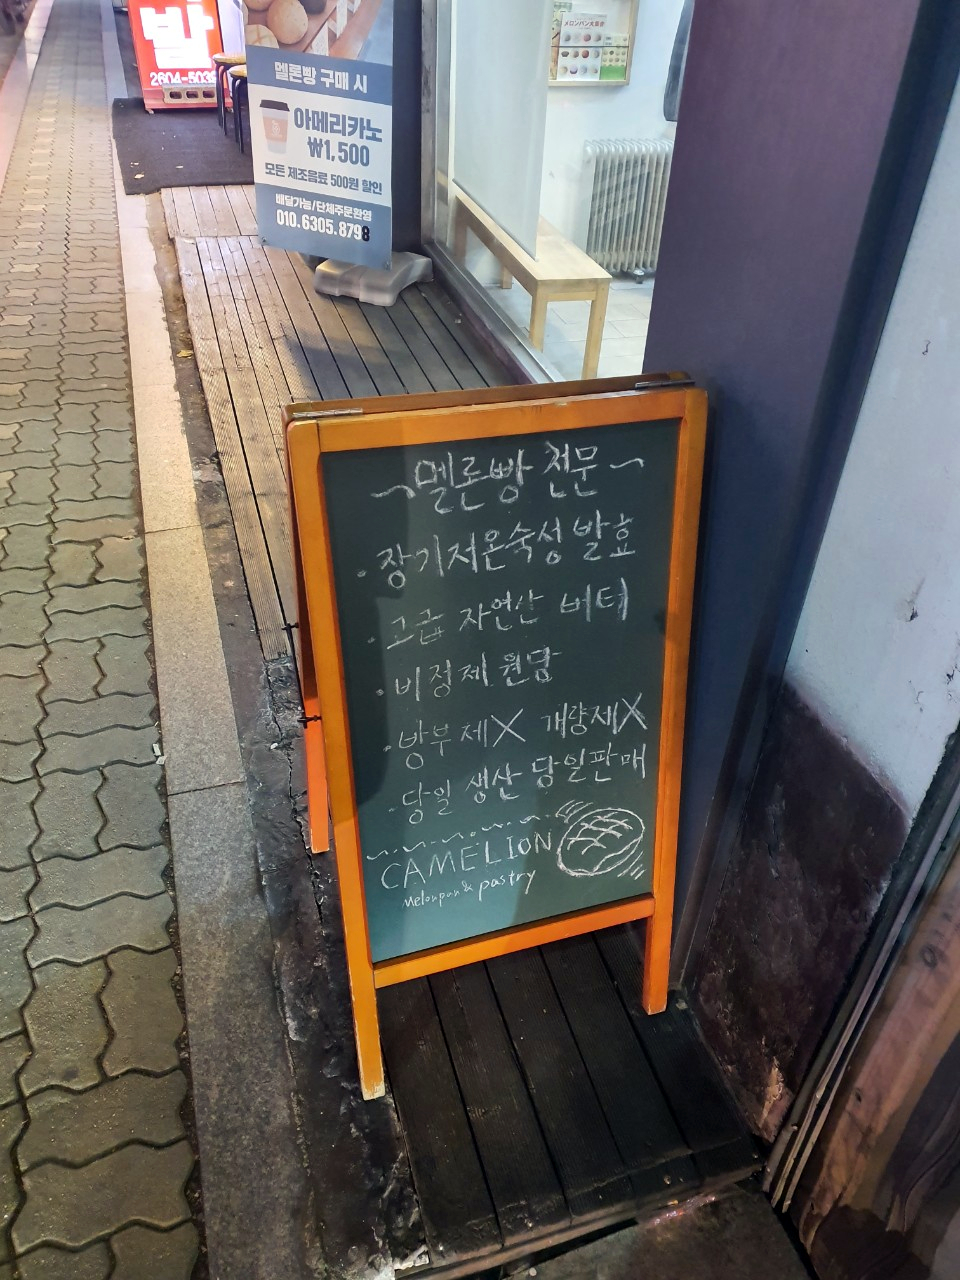 발
2604-5039
멜론빵 구매 시
아메리카노
₩1,500
모든 제조음료 500원 할인
배달가능/단체주문환영
010.6305.8798
メロンパン大集合
~멜론빵 전문~
· 장기저온숙성 발효
· 고급 자연산 버터
· 비정제 원당
· 방부제X 개량제X
· 당일 생산 당일판매
CAMELION
Melonpan & pastry